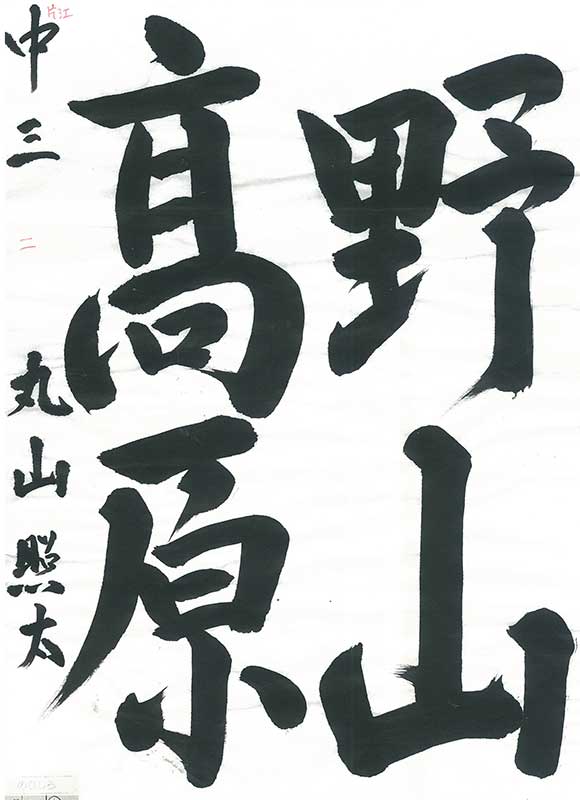 野山
髙原
中三 丸山照太
片江
二